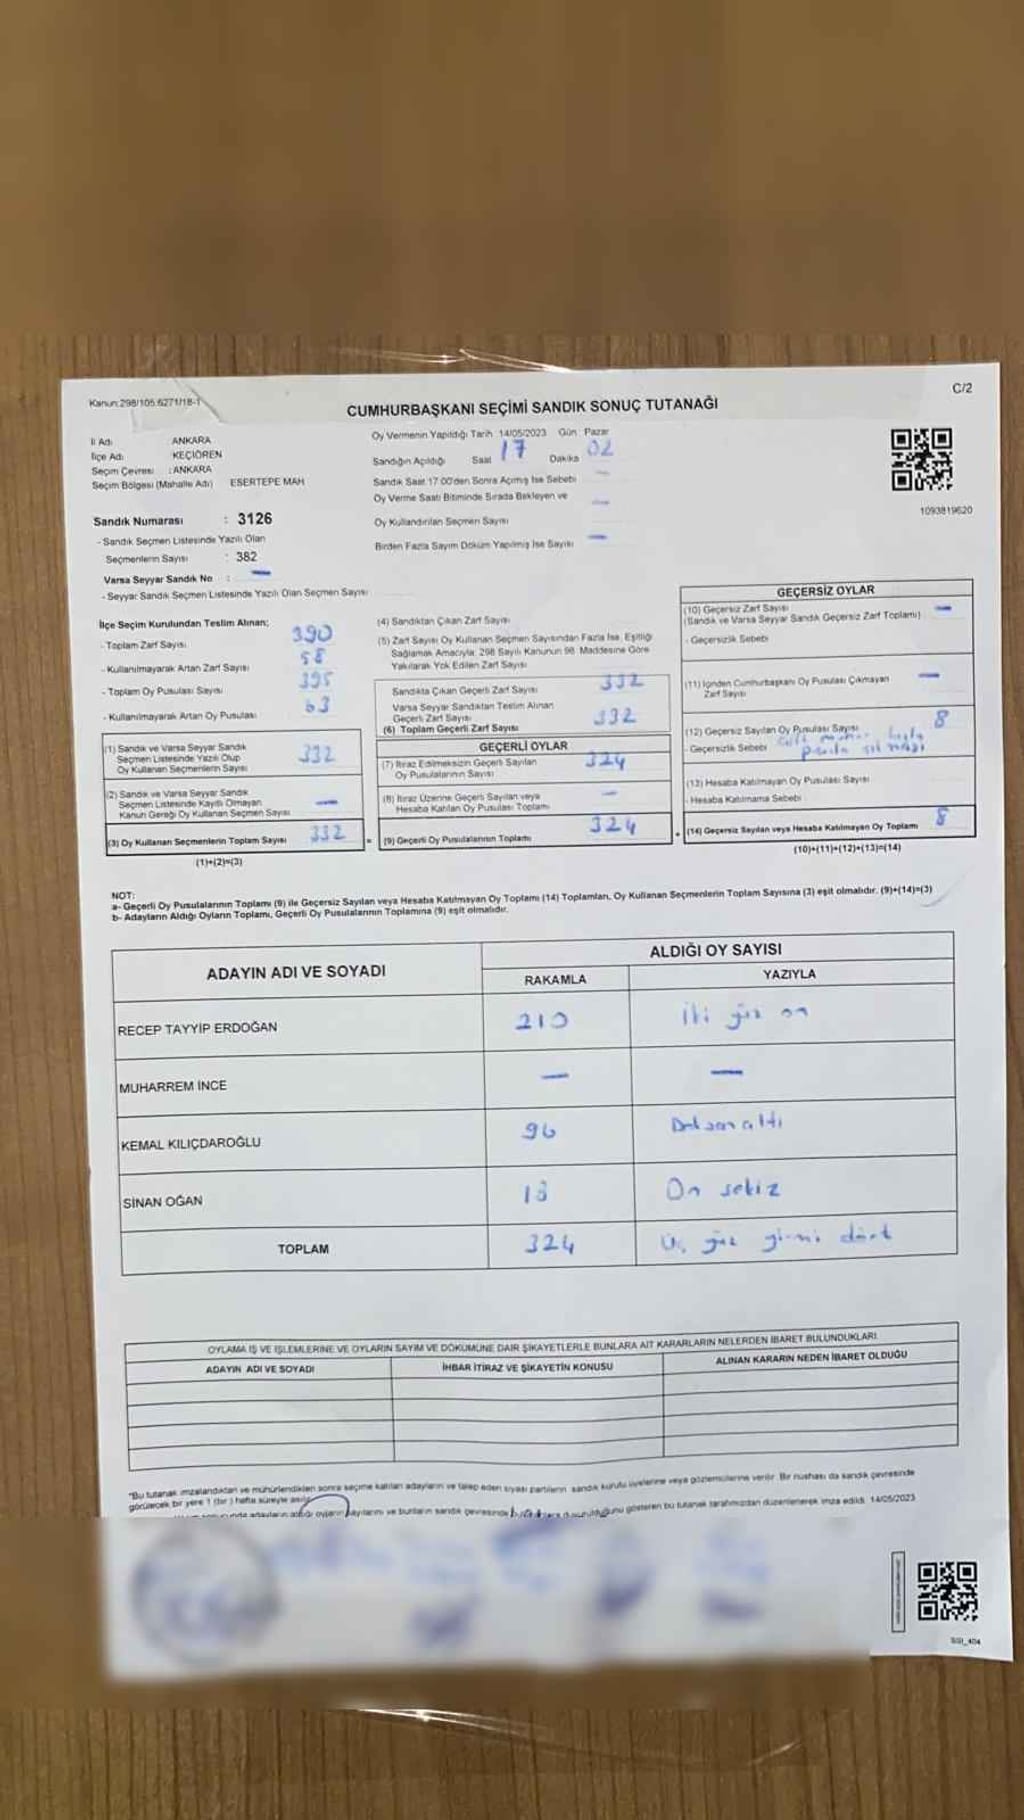 Kanun:298/105.6271/18-1
C/2
CUMHURBAŞKANI SEÇİMİ SANDIK SONUÇ TUTANAĞI
İl Adı ANKARA
İlçe Adı KEÇİÖREN
Seçim Çevresi : ANKARA
Seçim Bölgesi (Mahalle Adı) ESERTEPE MAH
Oy Vermenin Yapıldığı Tarih 14/05/2023 Gün : Pazar
Sandığın Açıldığı Saat 17 Dakika 02
Sandık Saat 17.00'den Sonra Açılmış İse Sebebi —
Oy Verme Saati Bitiminde Sırada Bekleyen ve
Oy Kullandırılan Seçmen Sayısı —
Birden Fazla Sayım Döküm Yapılmış İse Sayısı —
1093819620
Sandık Numarası : 3126
- Sandık Seçmen Listesinde Yazılı Olan
Seçmenlerin Sayısı : 382
Varsa Seyyar Sandık No : —
- Seyyar Sandık Seçmen Listesinde Yazılı Olan Seçmen Sayısı
İlçe Seçim Kurulundan Teslim Alınan;
- Toplam Zarf Sayısı 390
- Kullanılmayarak Artan Zarf Sayısı 58
- Toplam Oy Pusulası Sayısı 395
- Kullanılmayarak Artan Oy Pusulası 63
(1) Sandık ve Varsa Seyyar Sandık
Seçmen Listesinde Yazılı Olup
Oy Kullanan Seçmenlerin Sayısı 332
(2) Sandık ve Varsa Seyyar Sandık
Seçmen Listesinde Kayıtlı Olmayan
Kanun Gereği Oy Kullanan Seçmen Sayısı —
(3) Oy Kullanan Seçmenlerin Toplam Sayısı 332 =
(1)+(2)=(3)
(4) Sandıktan Çıkan Zarf Sayısı
(5) Zarf Sayısı Oy Kullanan Seçmen Sayısından Fazla İse, Eşitliği
Sağlamak Amacıyla, 298 Sayılı Kanunun 98. Maddesine Göre
Yakılarak Yok Edilen Zarf Sayısı
Sandıkta Çıkan Geçerli Zarf Sayısı 332
Varsa Seyyar Sandıktan Teslim Alınan
Geçerli Zarf Sayısı
(6) Toplam Geçerli Zarf Sayısı 332
GEÇERLİ OYLAR
(7) İtiraz Edilmeksizin Geçerli Sayılan
Oy Pusulalarının Sayısı 324
(8) İtiraz Üzerine Geçerli Sayılan veya
Hesaba Katılan Oy Pusulası Toplamı —
(9) Geçerli Oy Pusulalarının Toplamı 324 +
GEÇERSİZ OYLAR
(10) Geçersiz Zarf Sayısı
(Sandık ve Varsa Seyyar Sandık Geçersiz Zarf Toplamı) —
- Geçersizlik Sebebi
(11) İçinden Cumhurbaşkanı Oy Pusulası Çıkmayan
Zarf Sayısı —
(12) Geçersiz Sayılan Oy Pusulası Sayısı 8
- Geçersizlik Sebebi
(13) Hesaba Katılmayan Oy Pusulası Sayısı
- Hesaba Katılmama Sebebi
(14) Geçersiz Sayılan veya Hesaba Katılmayan Oy Toplamı 8
(10)+(11)+(12)+(13)=(14)
NOT:
a- Geçerli Oy Pusulalarının Toplamı (9) ile Geçersiz Sayılan veya Hesaba Katılmayan Oy Toplamı (14) Toplamları, Oy Kullanan Seçmenlerin Toplam Sayısına (3) eşit olmalıdır. (9)+(14)=(3)
b- Adayların Aldığı Oyların Toplamı, Geçerli Oy Pusulalarının Toplamına (9) eşit olmalıdır.
ADAYIN ADI VE SOYADI
ALDIĞI OY SAYISI
RAKAMLA YAZIYLA
RECEP TAYYİP ERDOĞAN 210 İki yüz on
MUHARREM İNCE — —
KEMAL KILIÇDAROĞLU 96 Doksan altı
SİNAN OĞAN 18 On sekiz
TOPLAM 324 Üç yüz yirmi dört
OYLAMA İŞ VE İŞLEMLERİNE VE OYLARIN SAYIM VE DÖKÜMÜNE DAİR ŞİKAYETLERLE BUNLARA AİT KARARLARIN NELERDEN İBARET BULUNDUKLARI
ADAYIN ADI VE SOYADI İHBAR İTİRAZ VE ŞİKAYETİN KONUSU ALINAN KARARIN NEDEN İBARET OLDUĞU
"Bu tutanak imzalandıktan ve mühürlendikten sonra seçime katılan adayların ve talep eden siyasi partilerin sandık kurulu üyelerine veya gözlemcilerine verilir. Bir nüshası da sandık çevresinde
görülecek bir yere 1 (bir) hafta süreyle asılır.
adayların aldığı oyların sayılarını ve bunların sandık çevresinde gösteren bu tutanak tarafımızdan düzenlenerek imza edildi. 14/05/2023
SGI_404